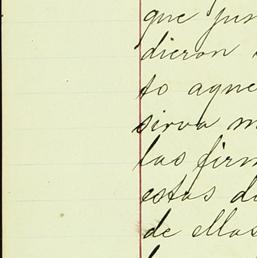 que jun
dieron
to aque
sirva m
las firm
estas di
de ellas